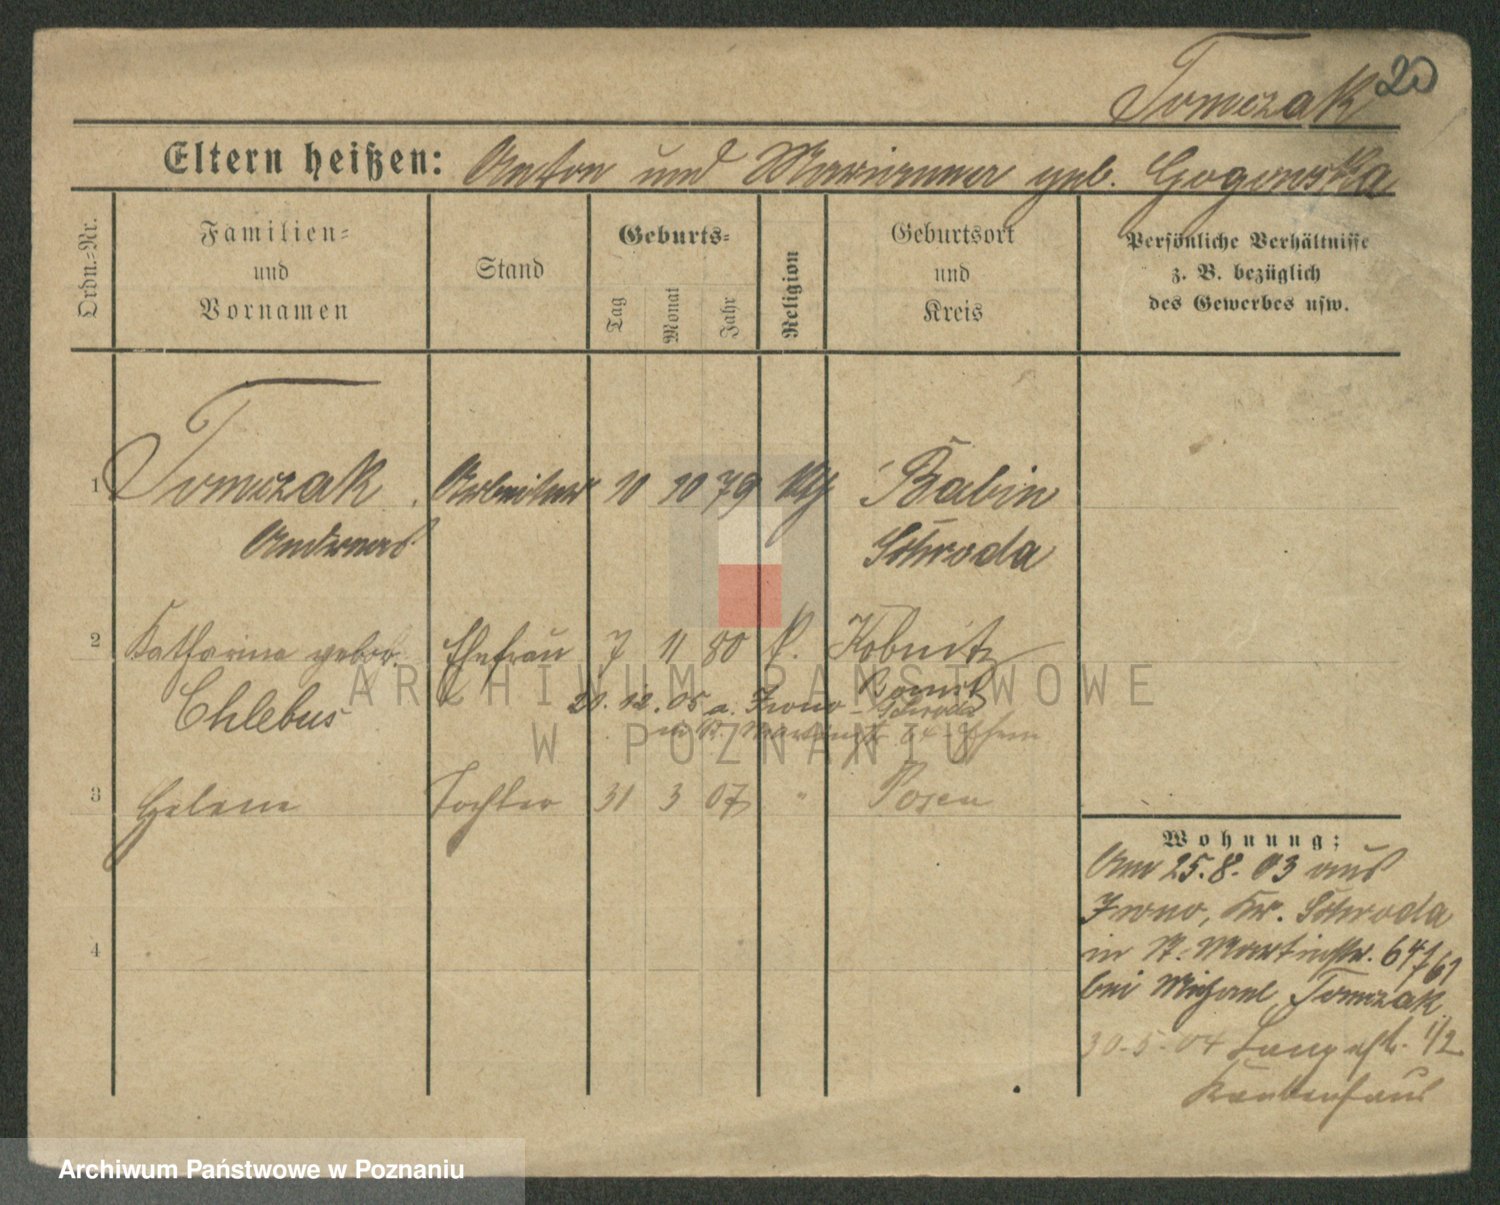 20
Tomczak
Eltern heißen: Anton und Marianna geb. Gogowska
Ordn.-Nr.
Familien-
und
Vornamen
Stand
Geburts-
Tag
Monat
Jahr
Religion
Geburtsort
und
Kreis
Persönliche Verhältnisse
z. B. bezüglich
des Gewerbes usw.
1 Tomczak Arbeiter 10 10 79 kth Babin
Andreas Schroda
2 Katharina gebor. Ehefrau 7 11 80 k. Kobnitz
Chlebus
12. 05 a. Iwno - Schroda
in St. Martinstr 64
3 Helene Tochter 31 3 07 " Posen
4
Wohnung:
Am 25.8.03 aus
Iwno, Kr. Schroda
in St. Martinstr. 64
bei Michael Tomczak
30.5.04 Langestr. 1/2
Krankenhaus
ARCHIWUM PAŃSTWOWE
W POZNANIU
Archiwum Państwowe w Poznaniu